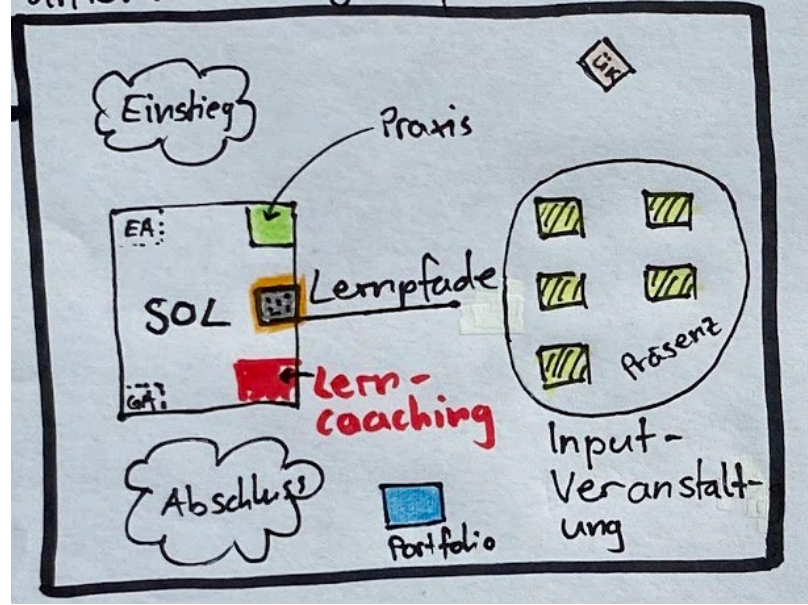 Einstieg
üK
Praxis
EA:
SOL
Lernpfade
GA:
Lern-
coaching
Präsenz
Input-
Veranstalt-
ung
Abschluss
Portfolio